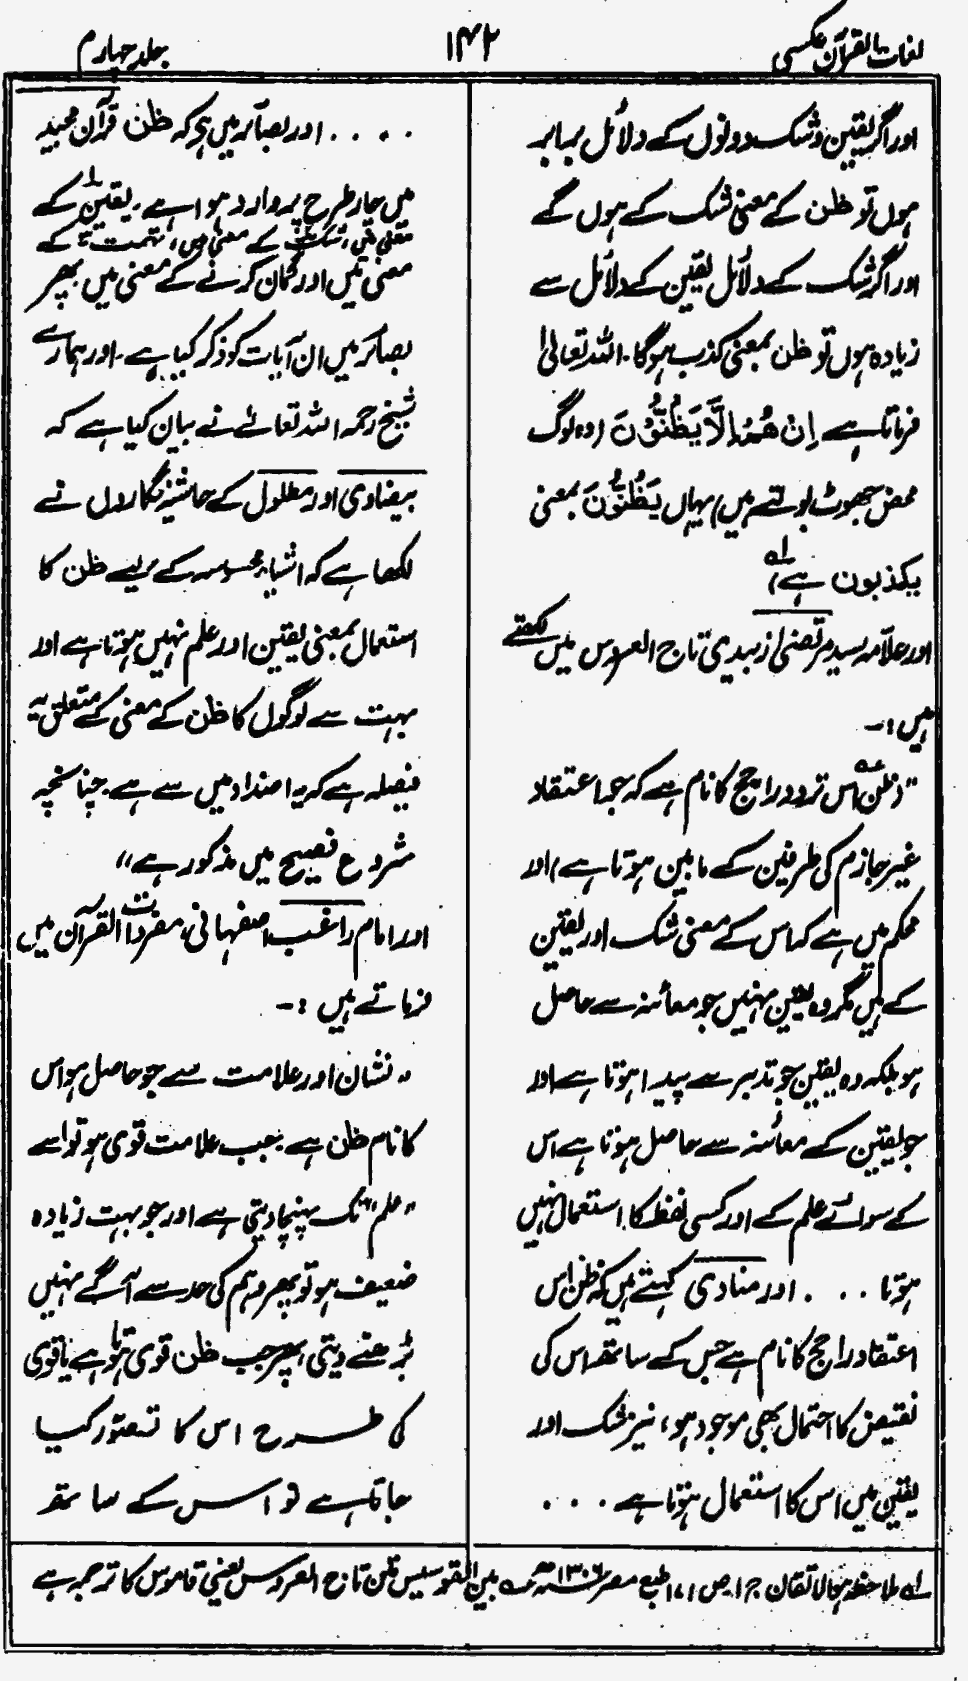 لغات القرآن عکسی
۱۴۲
جلد چہارم
اور اگر یقین و شک دونوں کے دلائل برابر
ہوں تو ظن کے معنی شک کے ہوں گے
اور اگر شک کے دلائل یقین کے دلائل سے
زیادہ ہوں تو ظن بمعنی کذب ہوگا۔ اللہ تعالیٰ
فرماتا ہے اِنْ هُمْ اِلَّا يَظُنُّوْنَ (وہ لوگ
محض جھوٹ بولتے ہیں) یہاں يَظُنُّوْنَ بمعنی
یکذبون ہے) لہ
اور علامہ سید مرتضیٰ زبیدی تاج العروس میں لکھتے
ہیں :۔
"(ظن) اس تردد راجح کا نام ہے کہ جو اعتقاد
غیر جازم کی طرفین کے مابین ہوتا ہے) اور
محکم میں ہے کہ اس کے معنی شک اور یقین
کے ہیں مگر وہ یقین نہیں جو معائنہ سے حاصل
ہو بلکہ وہ یقین جو تدبر سے پیدا ہوتا ہے اور
جو یقین کے معائنہ سے حاصل ہوتا ہے اس
کے سوائے علم کے اور کسی لفظ کا استعمال نہیں
ہوتا . . . اور منادی کہتے ہیں کہ ظن اس
اعتقاد راجح کا نام ہے جس کے ساتھ اس کی
نقیض کا احتمال بھی موجود ہو، نیز شک اور
یقین میں اس کا استعمال ہوتا ہے . . .
. . . . اور بصائر میں ہے کہ ظن قرآن مجید
میں چار طرح پر وارد ہوا ہے۔ یقین کے
معنی میں، شک کے معنی میں، تہمت کے
معنی میں اور گمان کرنے کے معنی میں پھر
بصائر میں ان آیات کو ذکر کیا ہے۔ اور ہمارے
شیخ رحمہ اللہ تعالےٰ نے بیان کیا ہے کہ
بیضاوی اور مطلول کے حاشیہ نگاروں نے
لکھا ہے کہ اشیاء محسوسہ کے لیے ظن کا
استعمال بمعنی یقین اور علم نہیں ہوتا ہے اور
بہت سے لوگوں کا ظن کے معنی کے متعلق یہ
فیصلہ ہے کہ یہ اضداد میں سے ہے۔ چنانچہ
شروع فصیح میں مذکور ہے"
اور امام راغب اصفہانی، مفردات القرآن میں
فرماتے ہیں :۔
"نشان اور علامت سے جو حاصل ہو اس
کا نام ظن ہے۔ جب علامت قوی ہو تو اسے
"علم" تک پہنچا دیتی ہے اور جو بہت زیادہ
ضعیف ہو تو پھر وہم کی حد سے آگے نہیں
بڑھنے دیتی، پھر جب ظن قوی ہوتا ہے یا قوی
کی طرح اس کا تصور کیا
جاتا ہے تو اس کے ساتھ
لہ ملاحظہ ہو الاتقان ج ۱ ص ۱۷۱ طبع مصر ۱۳۰۶ھ بین القوسین متن تاج العروس یعنی قاموس کا ترجمہ ہے